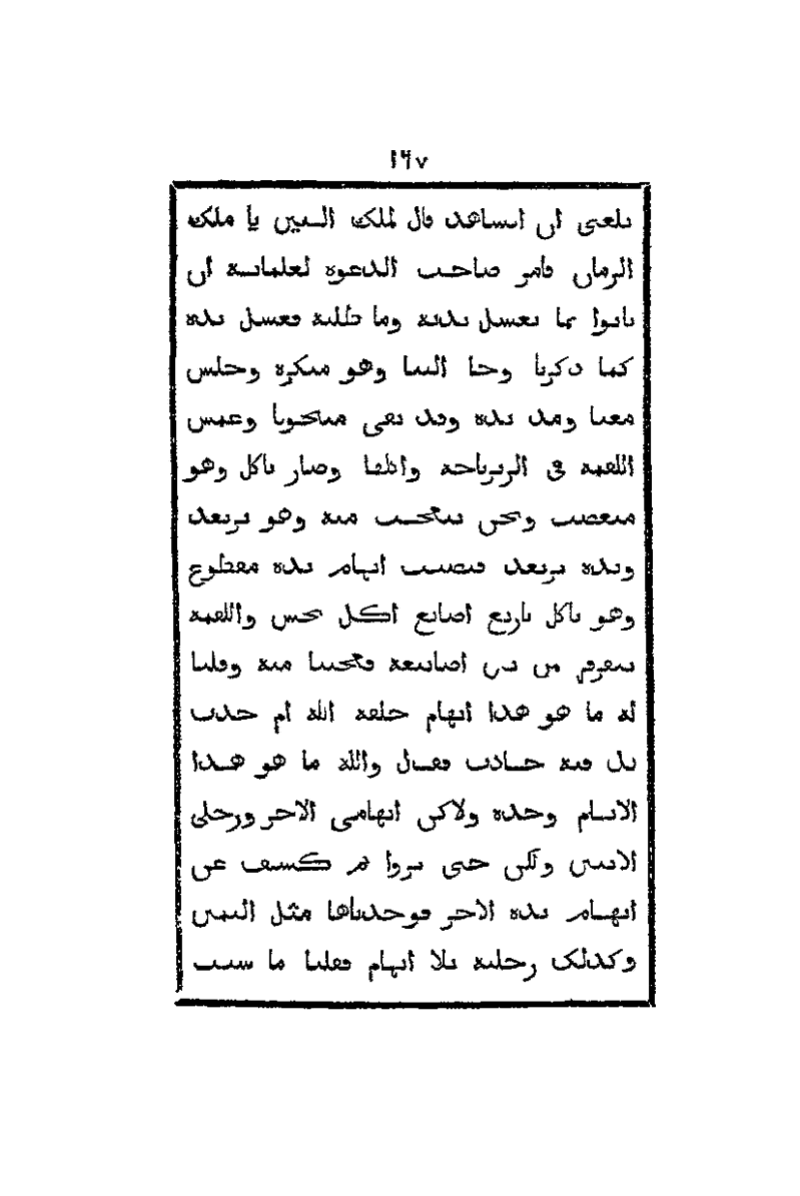 ١٦٧
بلغنى ان الشاهد قال لملك الصين يا ملك
الزمان فامر صاحب الدعوة لغلمانه ان
ياتوا بما يغسل يديه وما طلبه فغسل يده
كما ذكرنا وجا الينا وهو متكره وجلس
معنا ومد يده وقد بقى وغمس
اللقمة فى الزيرباجة واكلها وصار ياكل وهو
متغصب ونحن نتعجب منه وهو يرتعد
ويده ترتعد ابهام يده مقطوع
وهو ياكل باربع اصابع اكل نحس واللقمة
من بين اصابيعه فتعجبنا منه وقلنا
له ما هو هذا ابهام خلقة الله ام حدث
بك فيه حادث فقال والله ما هو هذا
الابهام وحده ولاكن ابهامى الاخر ورجلى
الاثنين ولكن حتى تروا ثم كشف عن
ابهام يده الاخر فوجدناها مثل اليمين
وكذلك رجليه بلا ابهام فقلنا ما سبب